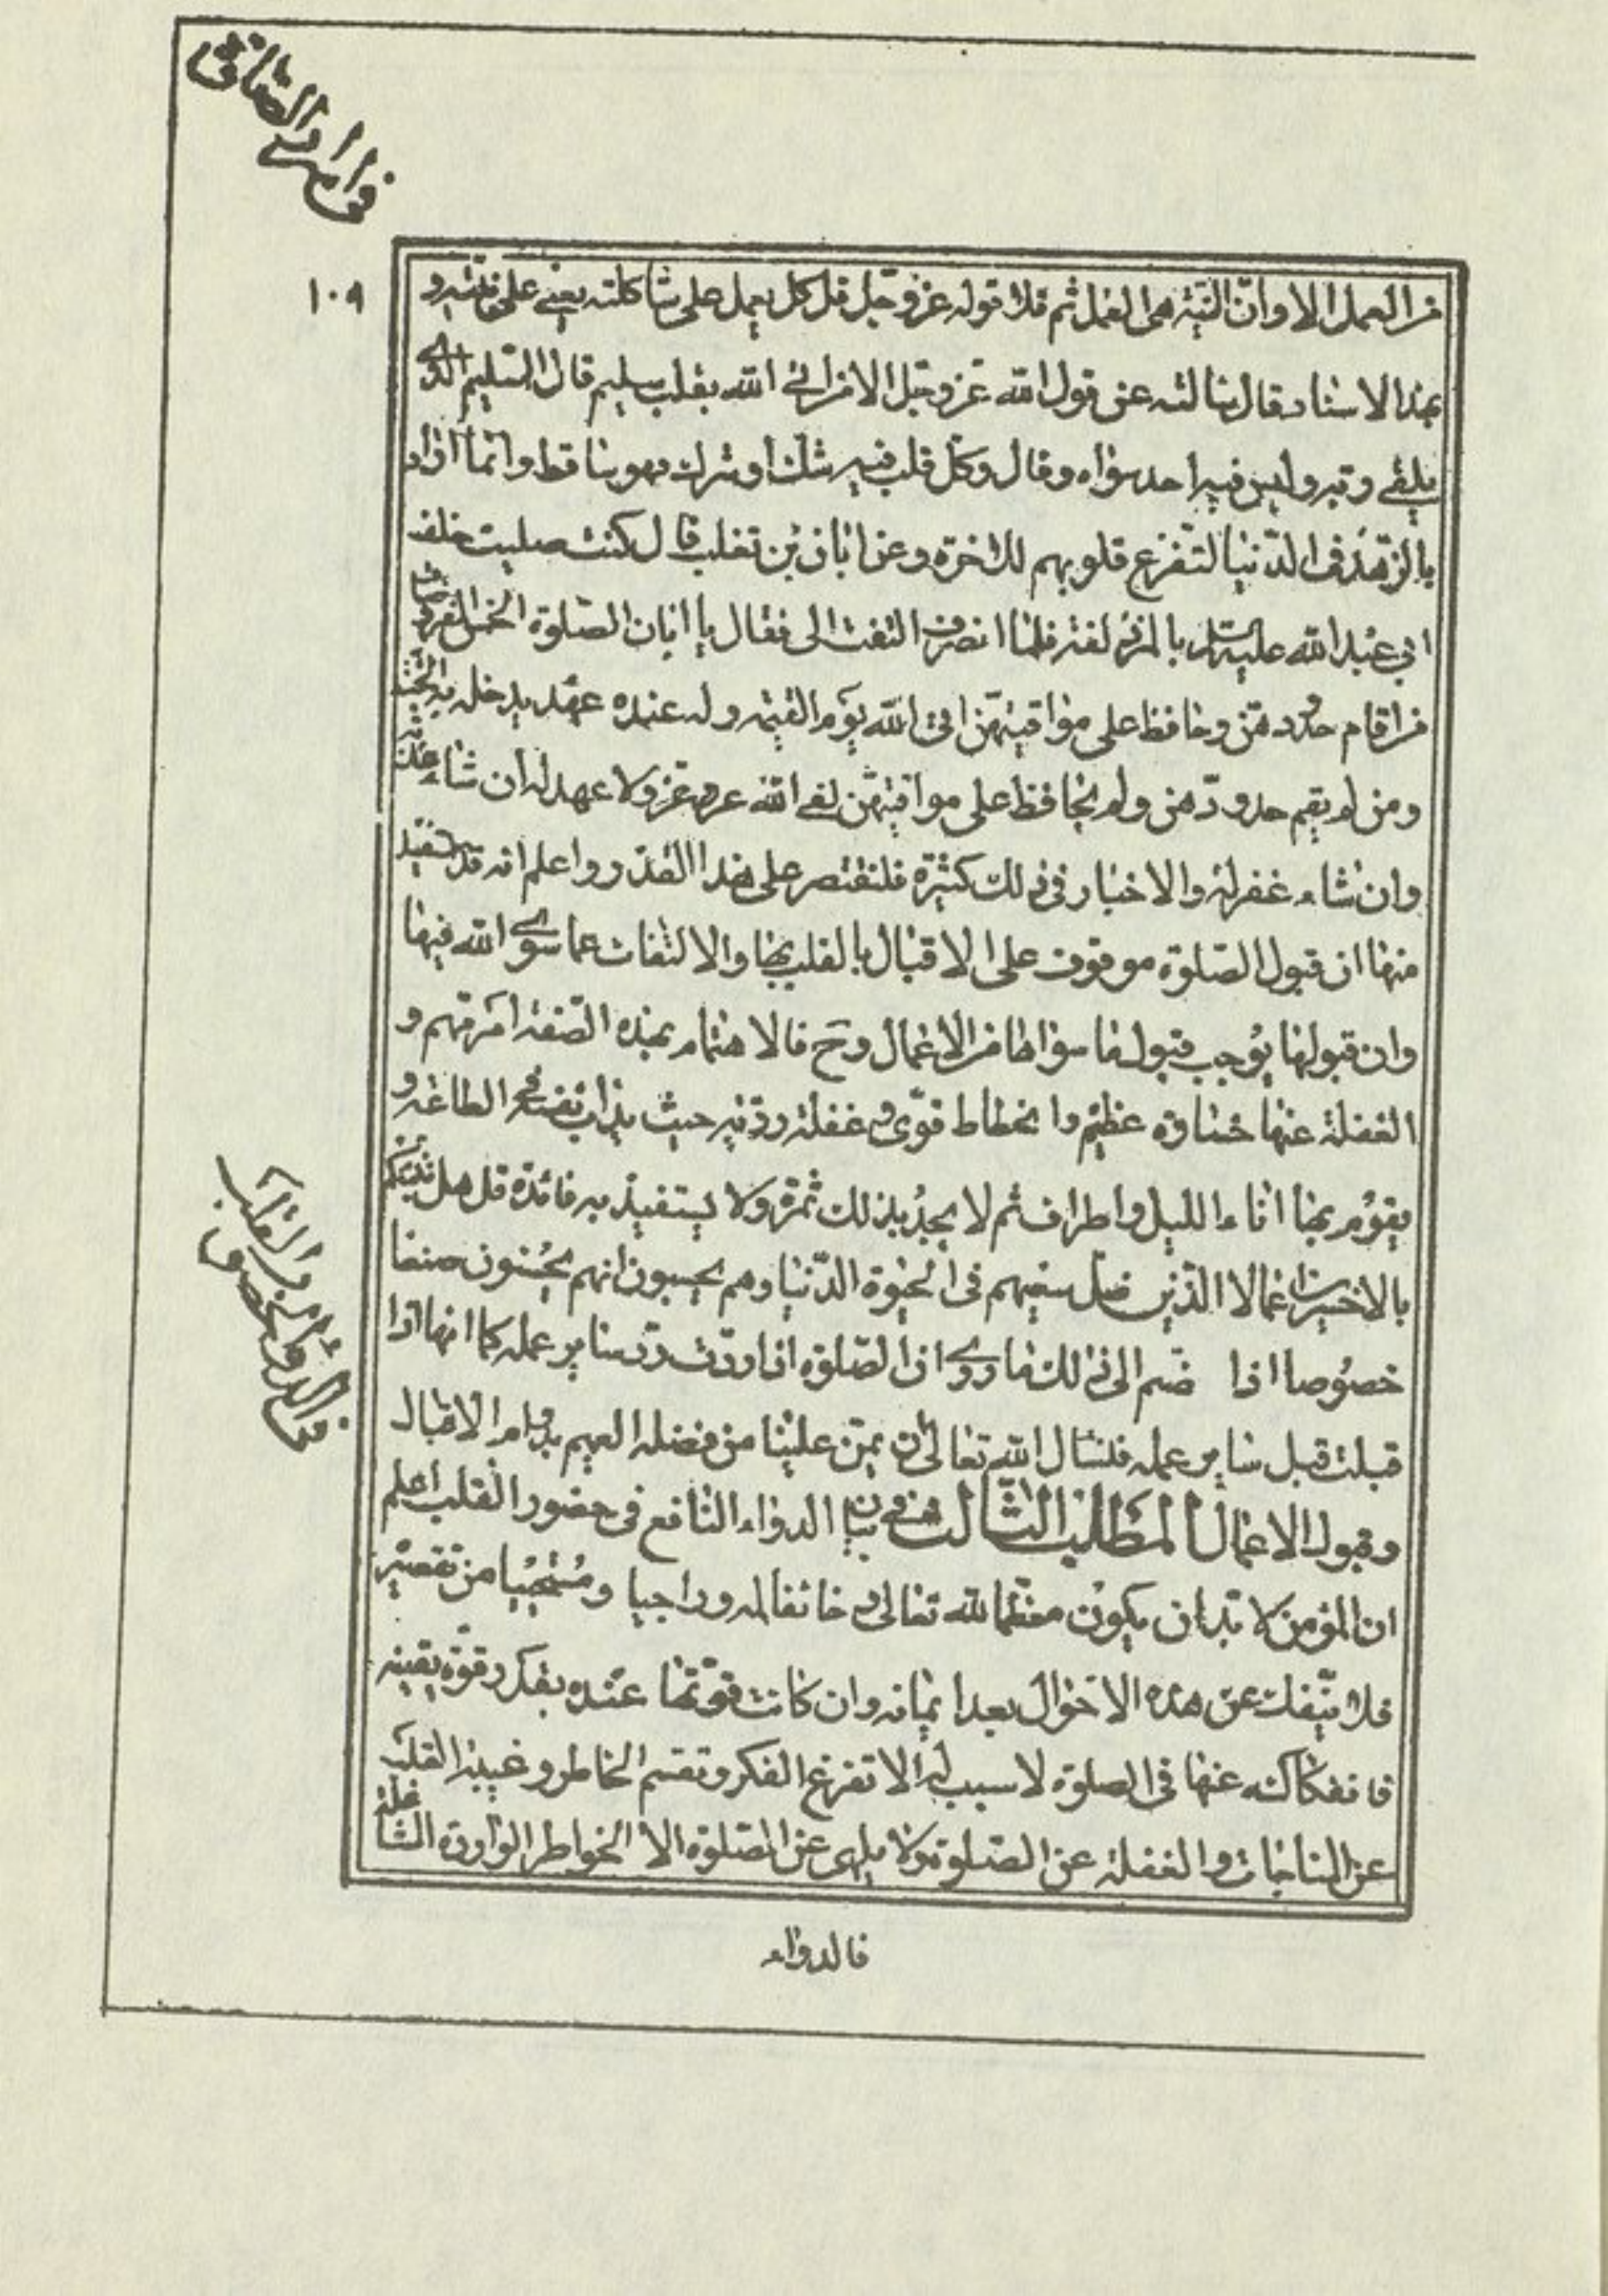 ١٠٩
من العمل الا وان النية هى العمل ثم تلا قوله عز وجل قل كل يعمل على شاكلته يعنى على نيته و
بهذا الاسناد قال سالته عن قول الله عز وجل الا من اتى الله بقلب سليم قال السليم الذى
يلقى ربه وليس فيه احد سواه وقال وكل قلب فيه شك او شرك فهو ساقط وانما اراد
بالزهد فى الدنيا لتفرغ قلوبهم للاخرة وعن ابان بن تغلب قال كنت صليت خلف
ابى عبد الله عليه السلام بالمزدلفة فلما انصرف التفت الى فقال يا ابان الصلوة الخمس المفروضات
من اقام حدودهن وحافظ على مواقيتهن اتى الله يوم القيمة وله عنده عهد يدخله به الجنة
ومن لم يقم حدودهن ولم يحافظ على مواقيتهن لقى الله عز وعز ولا عهد له ان شاء عذبه
وان شاء غفر له والاخبار فى ذلك كثيرة فلنقتصر على هذا القدر واعلم انه قد استفيد
منها ان قبول الصلوة موقوف على الاقبال بالقلب بها والالتفات عما سوى الله فيها
وان قبولها يوجب قبول ما سواها من الاعمال وح فالاهتمام بهذه الصفة امر مهم و
الغفلة عنها خسارة عظيم وانحطاط قوى وغفلة ردية حيث يداب نفسه فى الطاعة و
يقوم بها اناء الليل واطراف ثم لا يجد بذلك ثمرة ولا يستفيد به فائدة قل هل ننبئكم
بالاخسرين اعمالا الذين ضل سعيهم فى الحيوة الدنيا وهم يحسبون انهم يحسنون صنعا
خصوصا اذا ضم الى ذلك ما روى ان الصلوة اذا ردت رد سائر عمله كما انها اذا
قبلت قبل سائر عمله فلنسال الله تعالى ان يمن علينا من فضله العميم بدوام الاقبال
وقبول الاعمال المطلب الثالث فى بيان الدواء النافع فى حضور القلب اعلم
ان المؤمن لا بد ان يكون معظما لله تعالى و خائفا له وراجيا ومستحييا من تقصيره
فلا ينفك عن هذه الاحوال بعد ايمانه وان كانت قوتها عنده بقدر قوة يقينه
فانفكاكه عنها فى الصلوة لا سبب له الا تفرغ الفكر وتقسم الخاطر وغيبة القلب
عن المناجات والغفلة عن الصلوة ولا يلهى عن الصلوة الا الخواطر الواردة الشاغلة
فالدواء
فى الدواء النافع فى حضور القلب